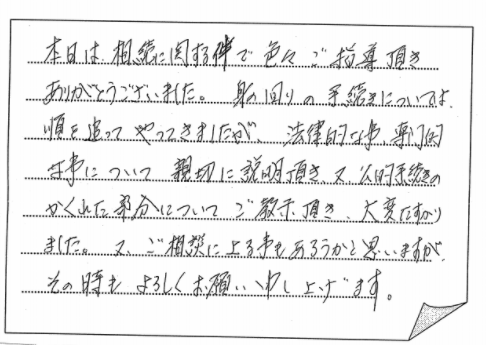 本日は、相続に関する件で色々ご指導頂き
ありがとうございました。身の回りの手続きについては、
順を追ってやってきましたが、法律的な事、専門的
な事について親切に説明頂き又公的手続きの
かくれた部分についてご教示頂き、大変たすかり
ました。又、ご相談に上る事もあろうかと思いますが、
その時もよろしくお願いいたし上げます。